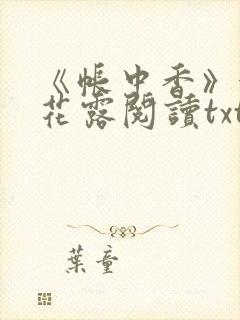 《帳中香》
花露閱讀txt
葉童